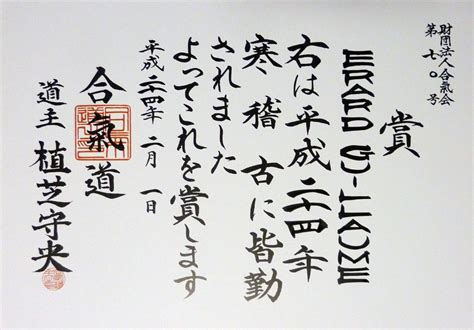 財団法人合氣会
第七〇号
賞
ERARD GUILLAUME
右は平成二十四年
寒稽古に皆勤
されました
よってこれを賞します
平成二十四年二月一日
合氣道
道主 植芝守央